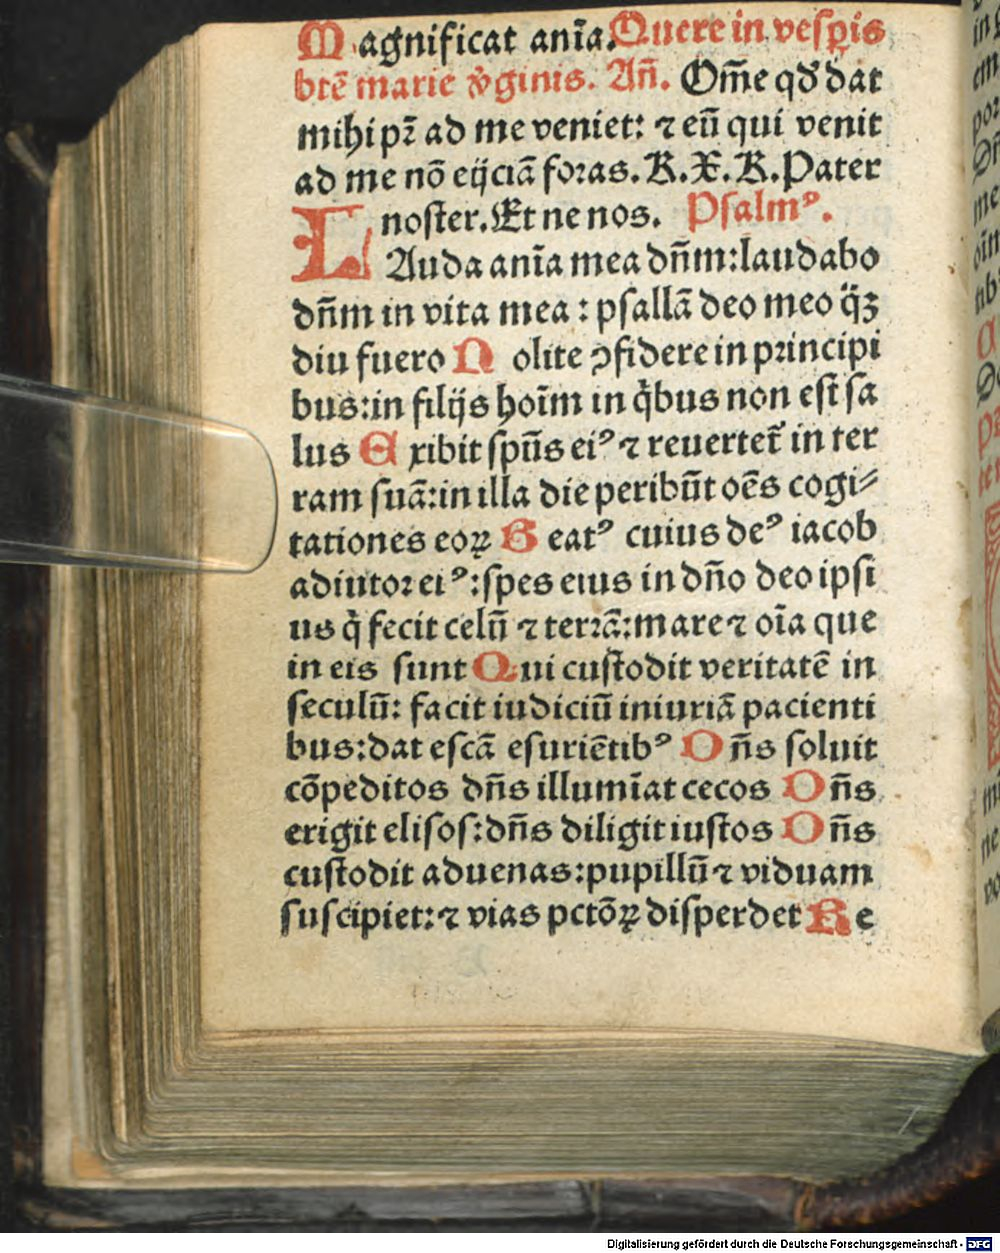 Magnificat anīa. Quere in vesꝑis
btē marie v̾ginis. Añ. Om̄e qd̾ dat
mihi pr̄ ad me veniet: ⁊ eū qui venit
ad me nō eijciā foras. K.X.K. Pater
noster. Et ne nos. Psalmꝰ.
LAuda anīa mea dn̄m: laudabo
dn̄m in vita mea: psallā deo meo q̈ꝫ
diu fuero Nolite ↄfidere in principi
bus: in filijs hoīm in q̇bus non est sa
lus Exibit spūs eiꝰ ⁊ reuertet̉ in ter
ram suā: in illa die peribūt oēs cogi⸗
tationes eoꝝ Beatꝰ cuius deꝰ iacob
adiutor eiꝰ: spes eius in dn̄o deo ipsi
us q̇ fecit celū ⁊ terrā: mare ⁊ oīa que
in eis sunt Qui custodit veritatē in
seculū: facit iudiciū iniuriā pacienti
bus: dat escā esuriētibꝰ Dn̄s soluit
cōpeditos dn̄s illumīat cecos Dn̄s
erigit elisos: dn̄s diligit iustos Dn̄s
custodit aduenas: pupillū ⁊ viduam
suscipiet: ⁊ vias pctōꝝ disperdet Re
Digitalisierung gefördert durch die Deutsche Forschungsgemeinschaft - DFG